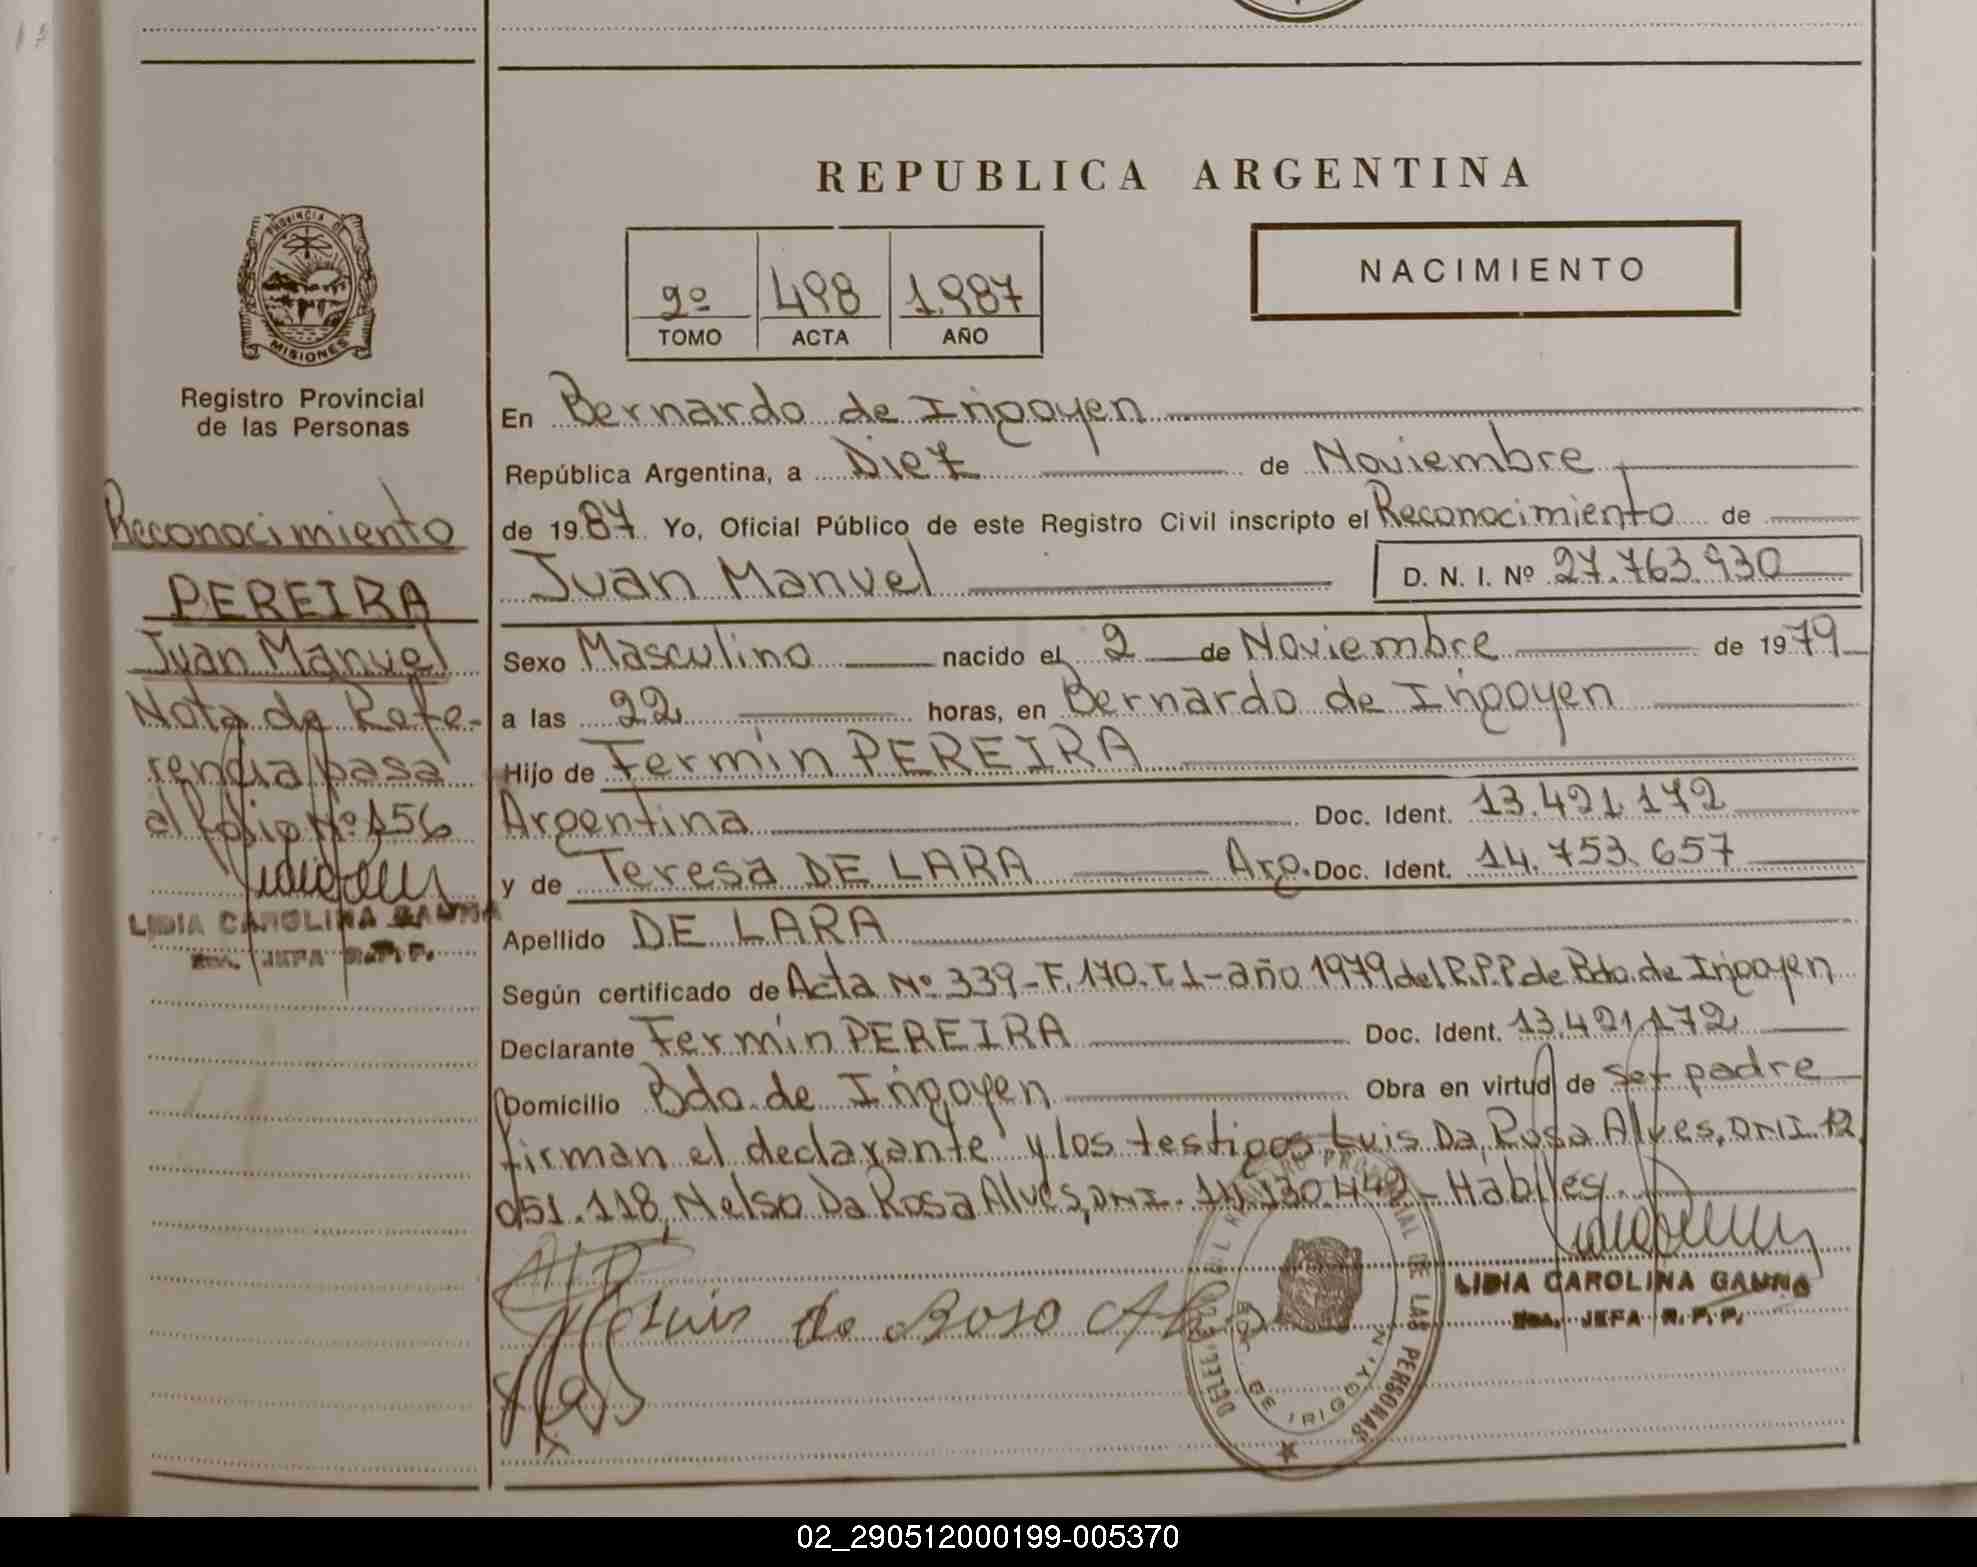 REPUBLICA ARGENTINA
PROVINCIA DE
MISIONES
Registro Provincial
de las Personas
2º 498 1.987
TOMO ACTA AÑO
NACIMIENTO
Reconocimiento
PEREIRA
Juan Manuel
Nota de Refe-
rencia pasa
al Folio Nº 156
LIDIA CAROLINA GAUNA
JEFA R.P.P.
En Bernardo de Irigoyen
República Argentina, a Diez de Noviembre
de 1987. Yo, Oficial Público de este Registro Civil inscripto el Reconocimiento de
Juan Manuel D. N. I. Nº 27.763.930
Sexo Masculino nacido el 2 de Noviembre de 1979
a las 22 horas, en Bernardo de Irigoyen
Hijo de Fermín PEREIRA
Argentina Doc. Ident. 13.421.172
y de Teresa DE LARA Arg. Doc. Ident. 14.753.657
Apellido DE LARA
Según certificado de Acta Nº 339-F.170.T.1-año 1979 del R.P.P de Bdo. de Irigoyen
Declarante Fermín PEREIRA Doc. Ident. 13.421.172
Domicilio Bdo. de Irigoyen Obra en virtud de ser padre
firman el declarante y los testigos Luis Da Rosa Alves, DNI. 12
051.118, Nelso Da Rosa Alves, DNI. 14.130.442 - Hábiles.
Luis da Rosa Alves
LIDIA CAROLINA GAUNA
JEFA R.P.P.
REGISTRO PROVINCIAL DE LAS PERSONAS
BDO. DE IRIGOYEN
02_290512000199-005370